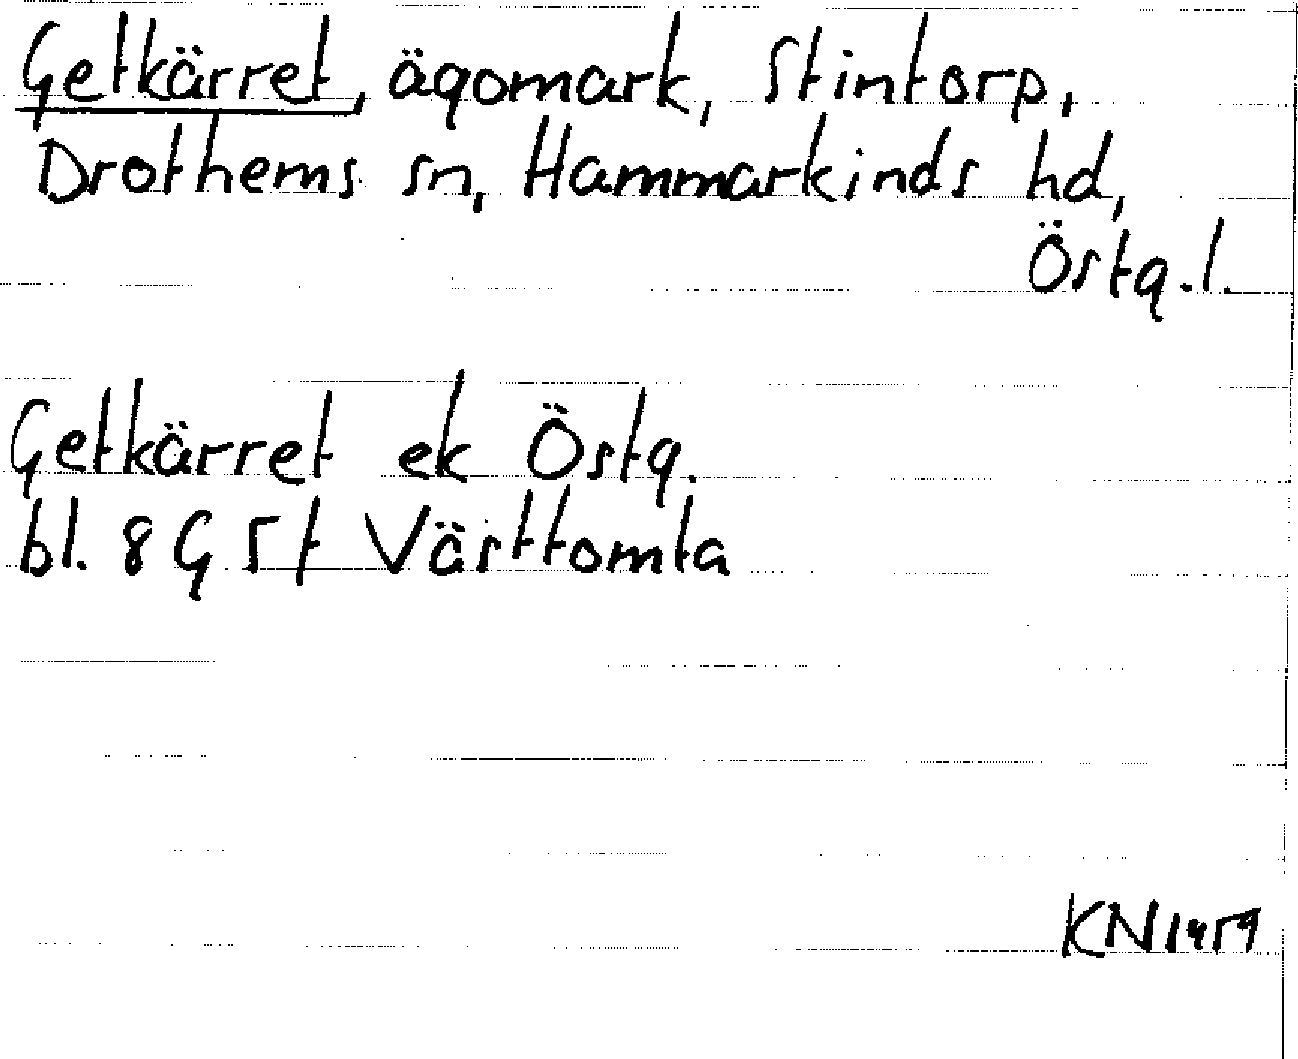 Getkärret, ägomark, Stintorp,
Drothems sn, Hammarkinds hd,
Östg.l.
Getkärret ek Östg.
bl. 8G 5f Västtomta
KN